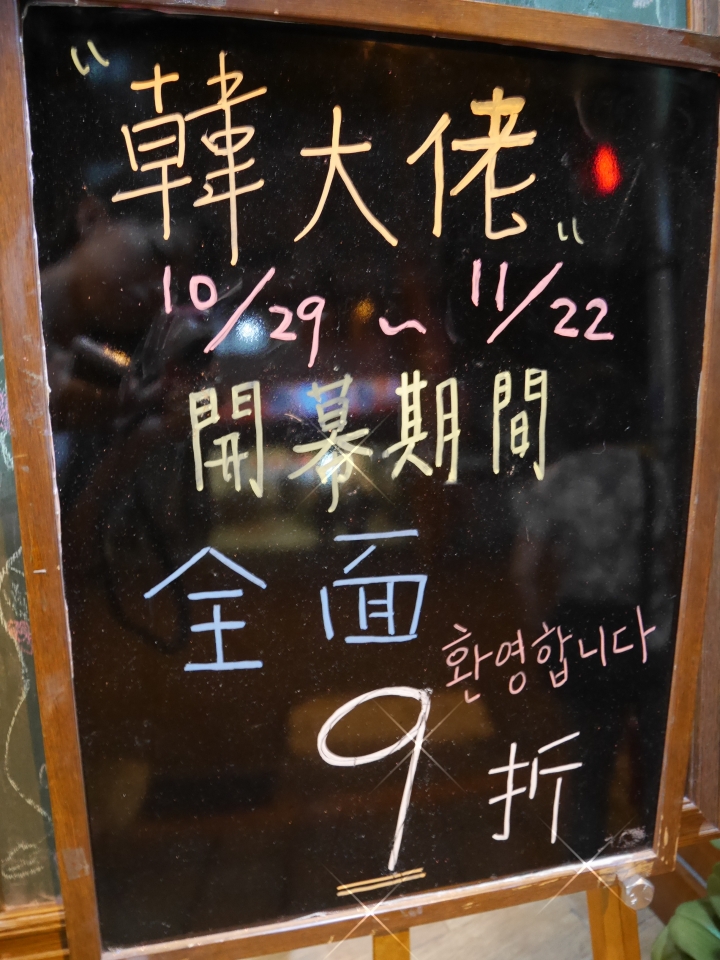 "韓大佬"
10/29～11/22
開幕期間
全面
환영합니다
9折